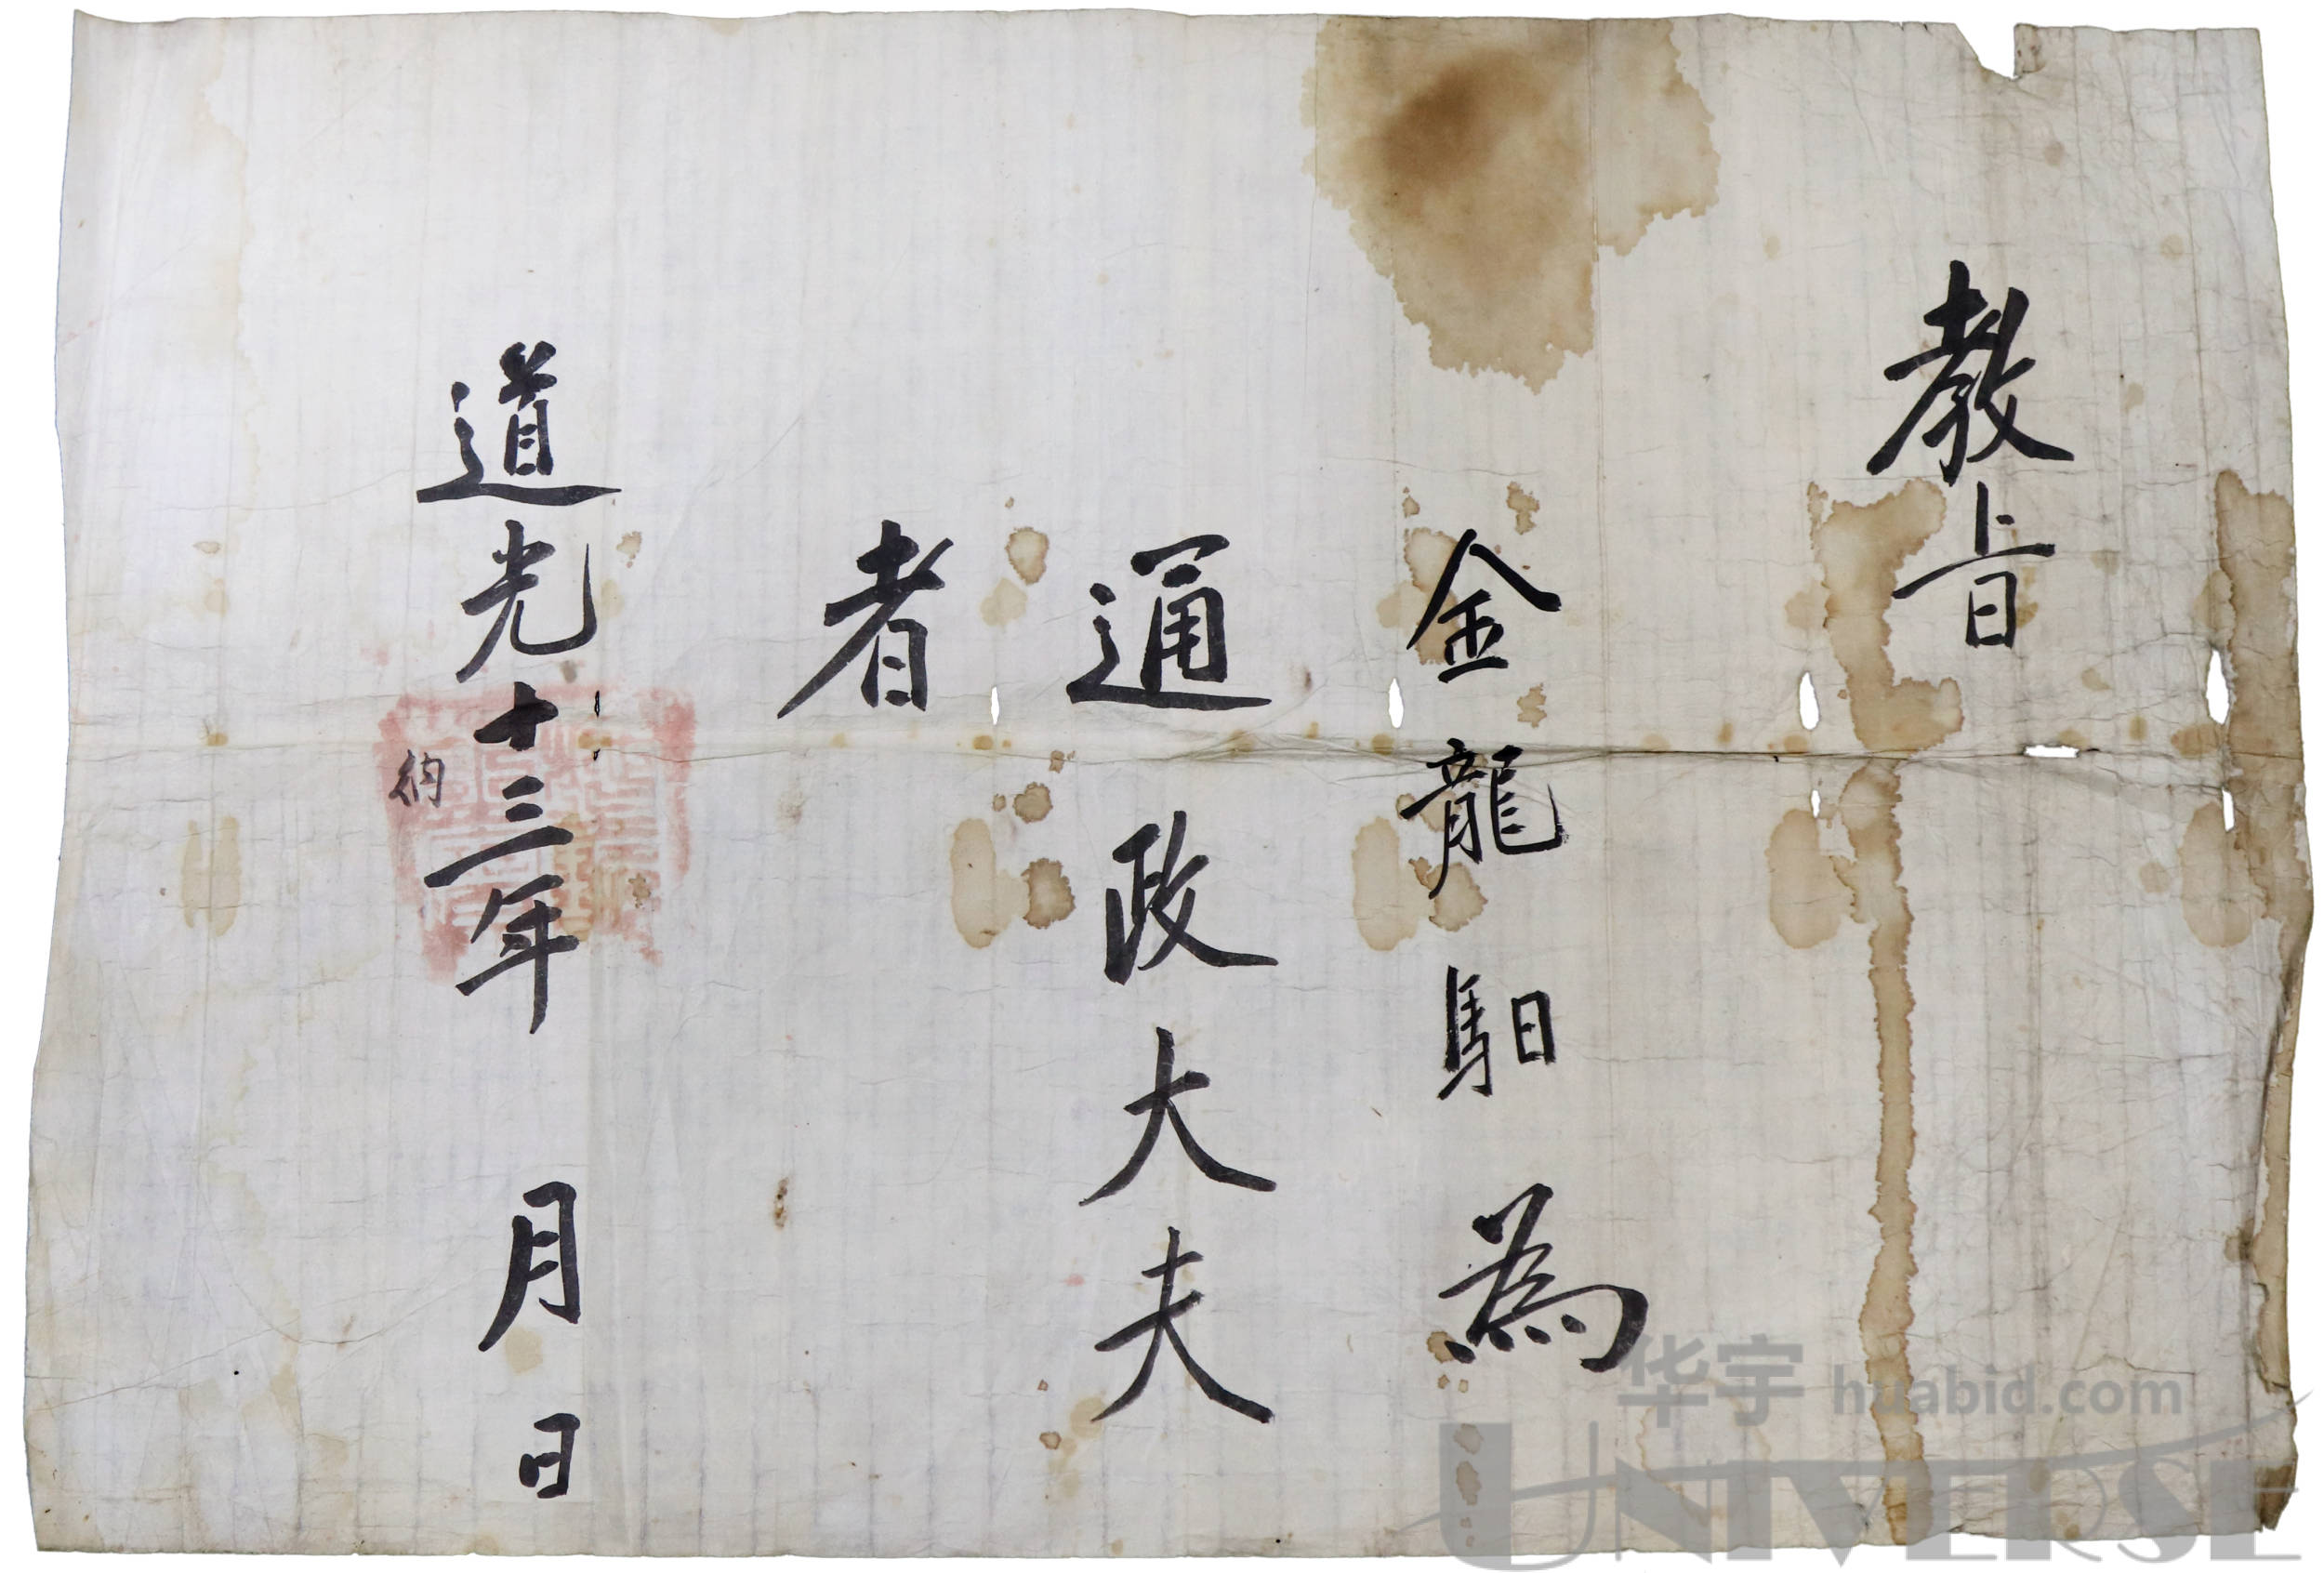 教旨
金龍馹為
通政大夫
者
道光十三年 月 日
納
华宇 huabid.com
UNIVERSE